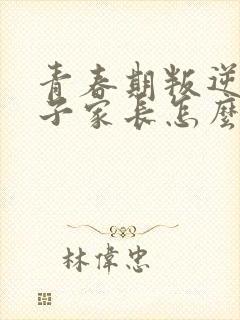 青春期叛逆
子家長怎麼
林偉忠